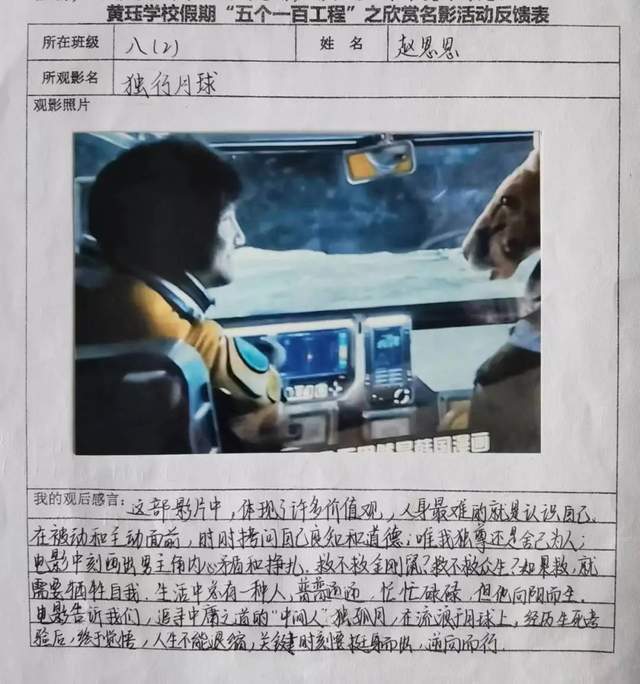 黄珏学校假期“五个一百工程”之欣赏名影活动反馈表
所在班级 八(2) 姓 名 赵思思
所观影名 独行月球
观影照片
韩国漫画
我的观后感言：这部影片中，体现了许多价值观，人身最难的就是认识自己.
在被动和主动面前，时时拷问自己良知和道德；唯我独尊还是舍己为人；
电影中刻画出男主角内心矛盾和挣扎，救不救金刚鼠？救不救众生？如果救，就
需要牺牲自我. 生活中总有一种人，普普通通，忙忙碌碌，但他向阴而生.
电影告诉我们，追寻中庸之道的“中间人”独孤月，在流浪于月球上，经历生死考
验后，终于觉悟，人生不能退缩，关键时刻要挺身而出，逆向而行.